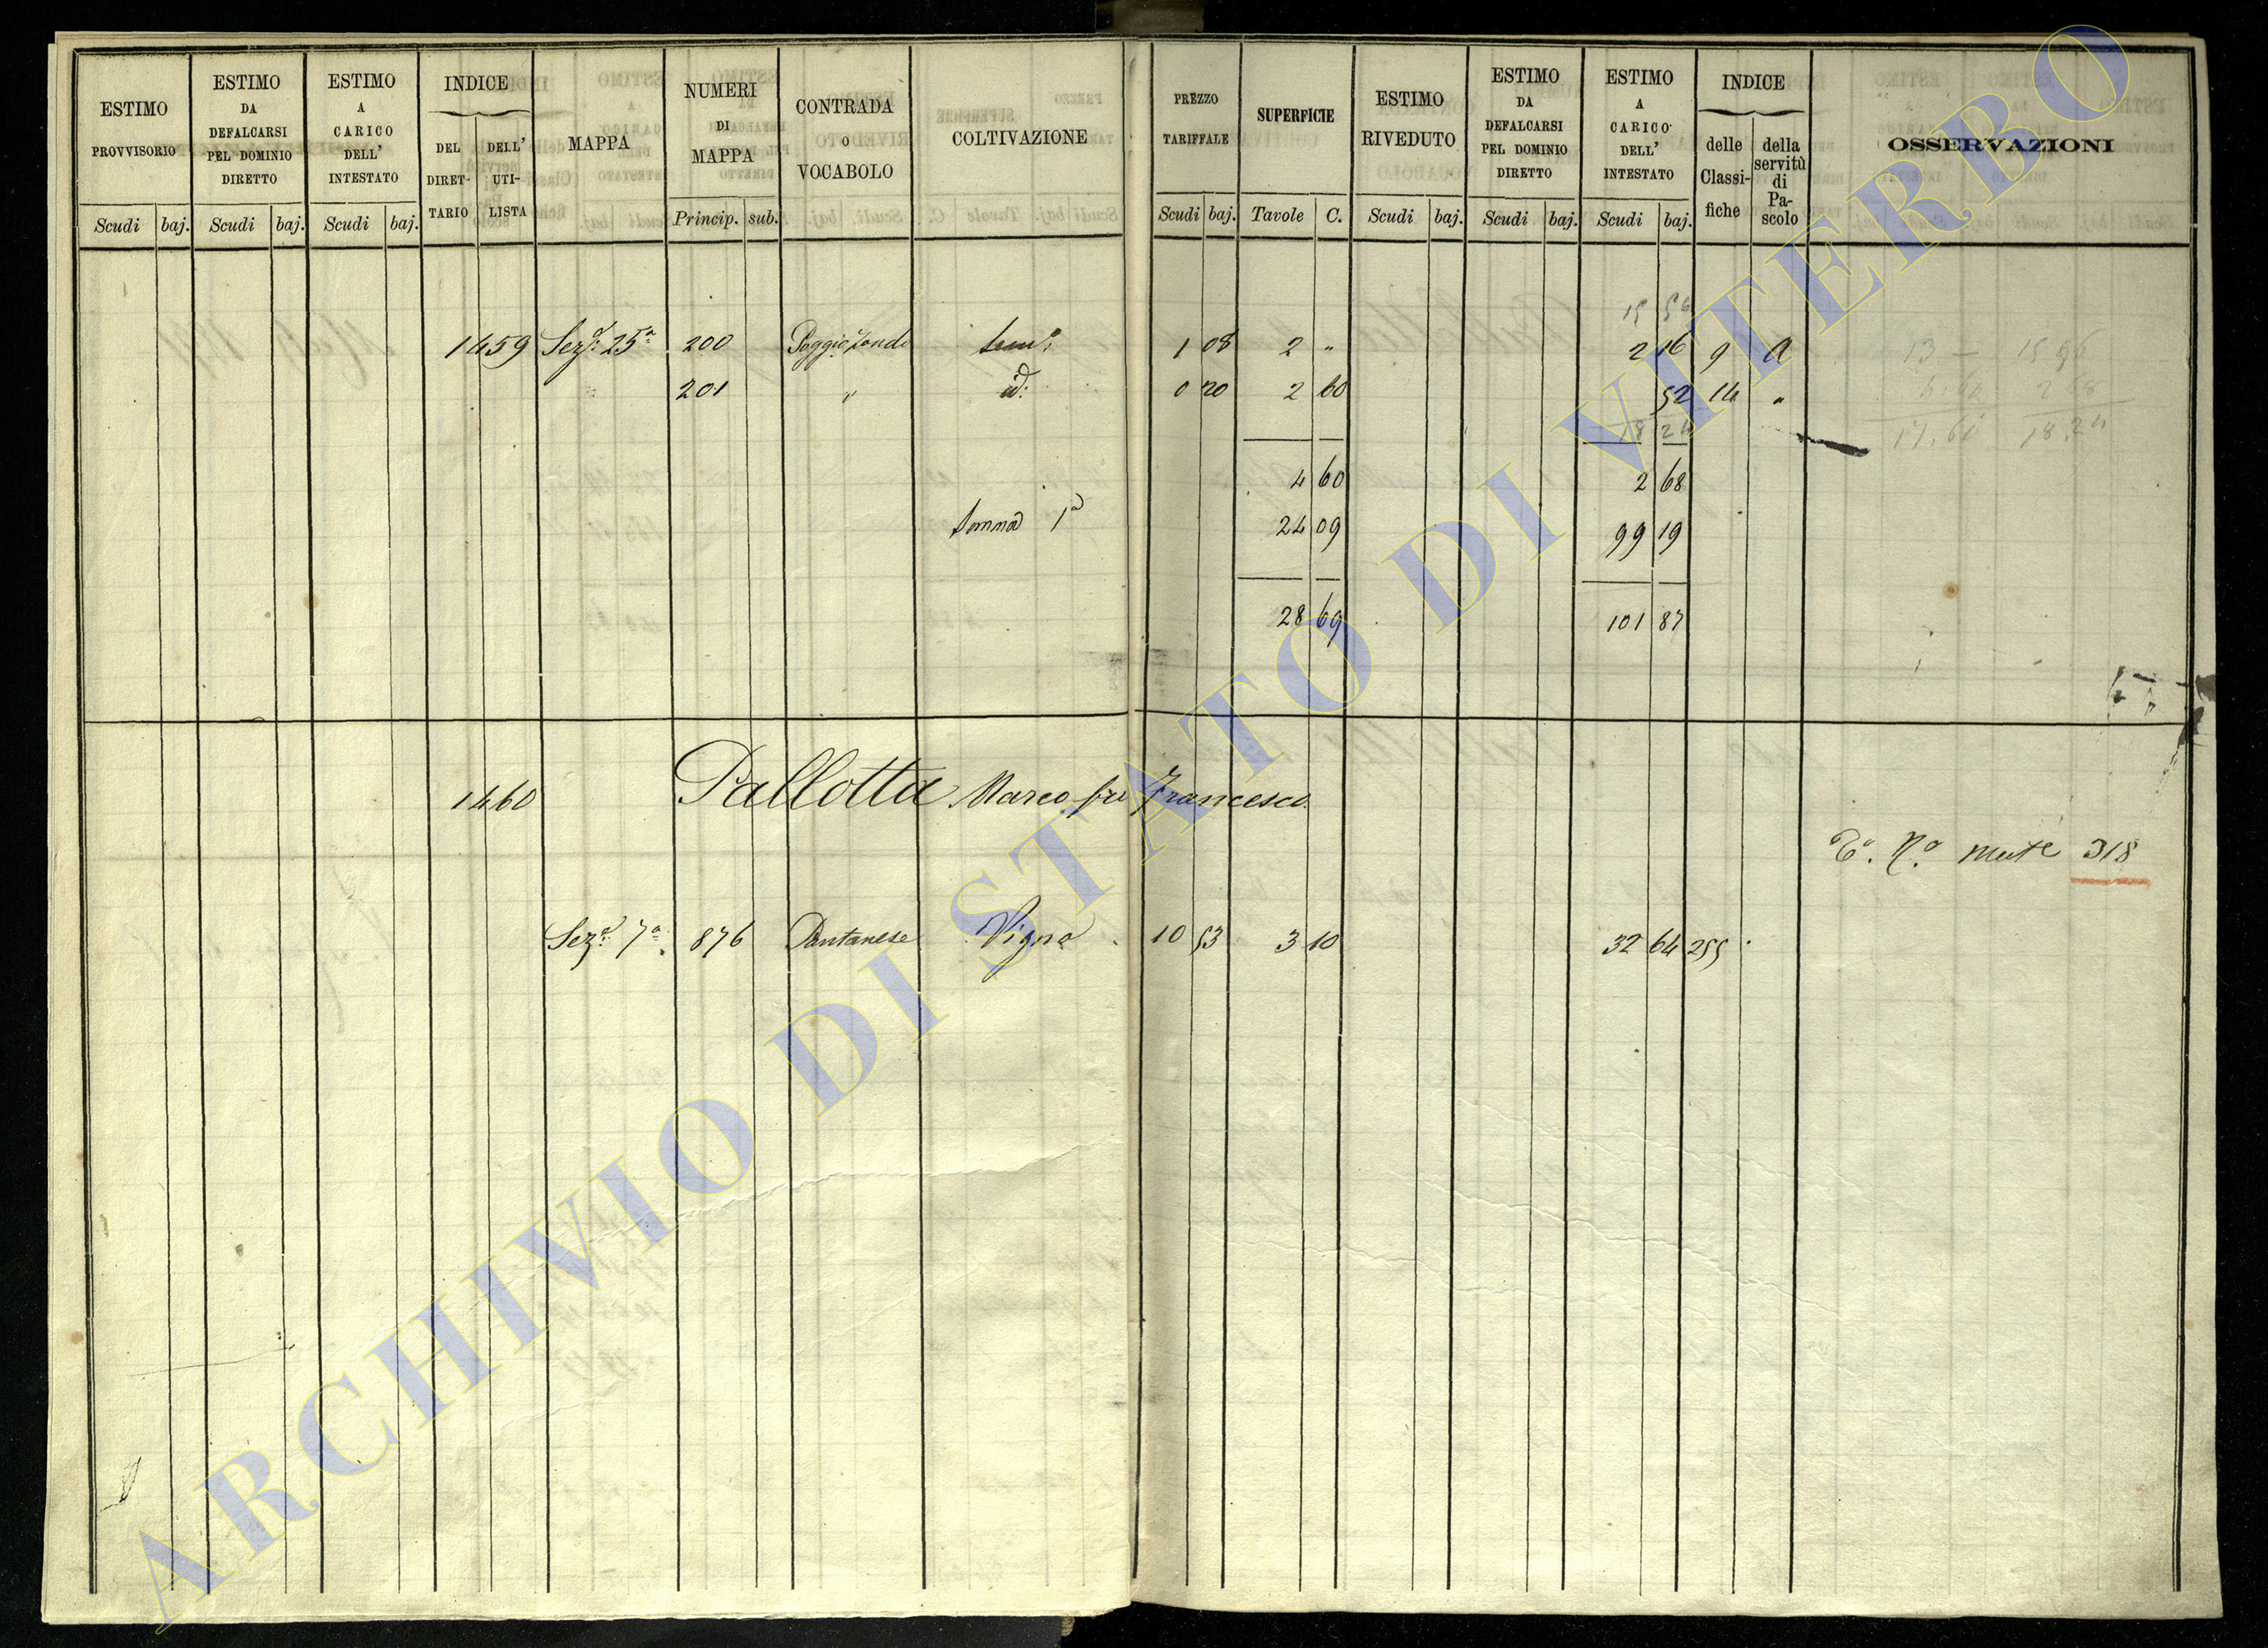 ESTIMO PROVVISORIO
Scudi baj.
ESTIMO DA DEFALCARSI PEL DOMINIO DIRETTO
Scudi baj.
ESTIMO A CARICO DELL' INTESTATO
Scudi baj.
INDICE
DEL DIRET- TARIO
DELL' UTI- LISTA
MAPPA
NUMERI DI MAPPA
Princip. sub.
CONTRADA o VOCABOLO
COLTIVAZIONE
PREZZO TARIFFALE
Scudi baj.
SUPERFICIE
Tavole C.
ESTIMO RIVEDUTO
Scudi baj.
ESTIMO DA DEFALCARSI PEL DOMINIO DIRETTO
Scudi baj.
ESTIMO A CARICO DELL' INTESTATO
Scudi baj.
INDICE
delle Classi- fiche
della servitù di Pa- scolo
OSSERVAZIONI
1459 Sezª 25ª 200 1 08 2 " 2 16 9 A
201 " id: 0 20 2 60 52 14 "
18 24
4 60 2 68
Somma 1ª 24 09 99 19
28 69 101 87
1460 Pallotta Marco fu Francesco
Nº 318
Sezª 7ª 876 Pantanese Vigna 10 53 3 10 32 64 255
ARCHIVIO DI STATO DI VITERBO